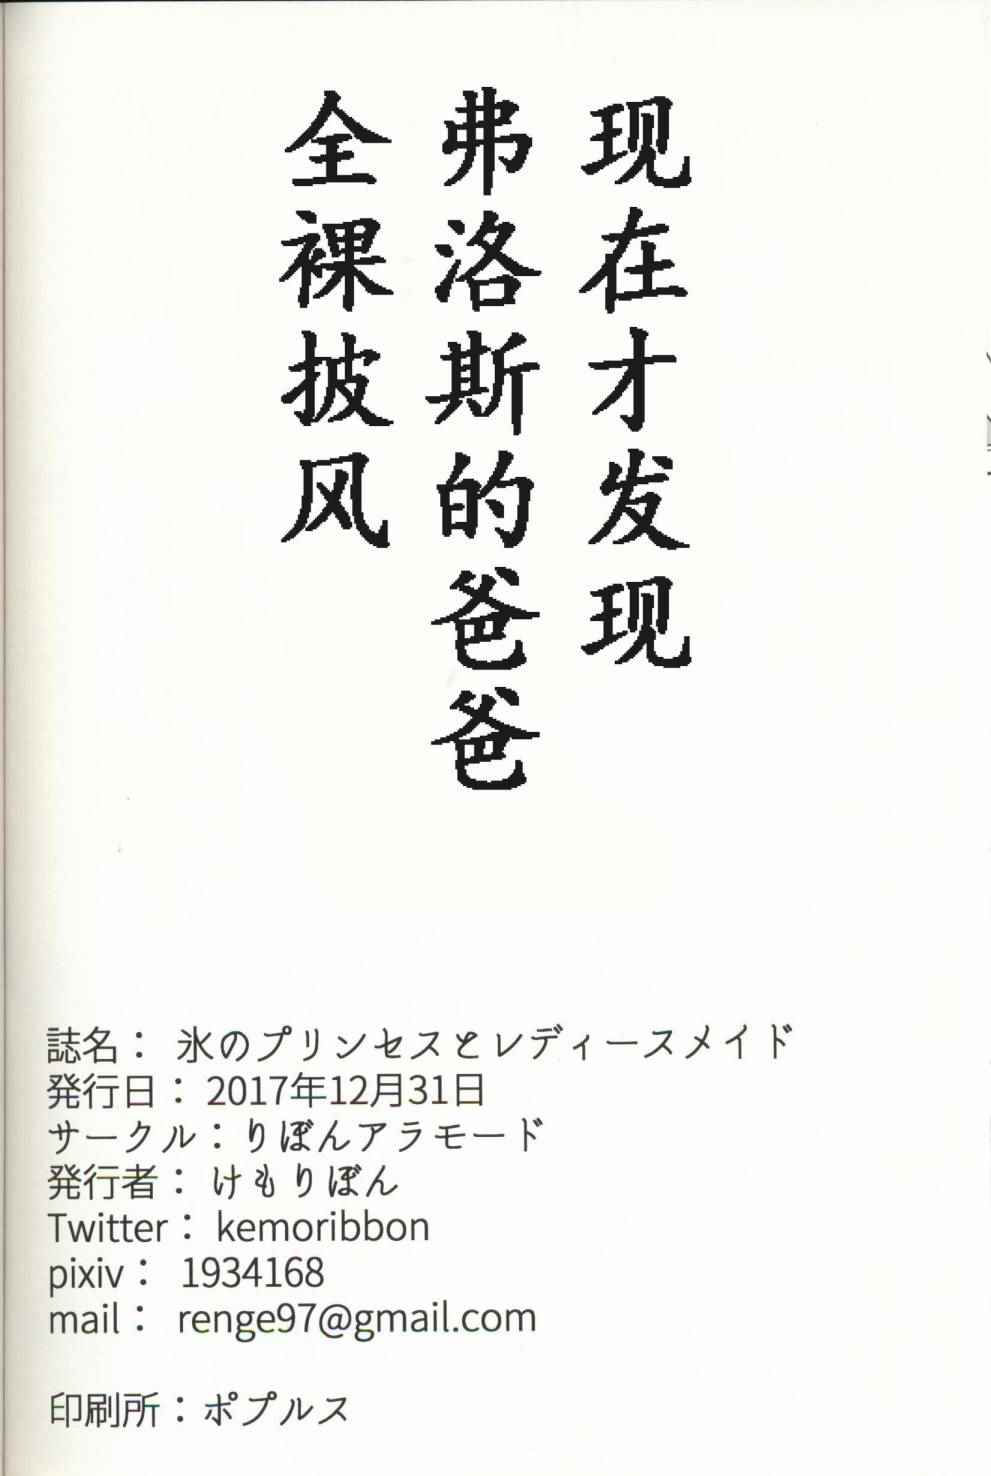 现在才发现
弗洛斯的爸爸
全裸披风
誌名： 氷のプリンセスとレディースメイド
発行日：2017年12月31日
サークル：りぼんアラモード
発行者： けもりぼん
Twitter： kemoribbon
pixiv： 1934168
mail： renge97@gmail.com
印刷所：ポプルス